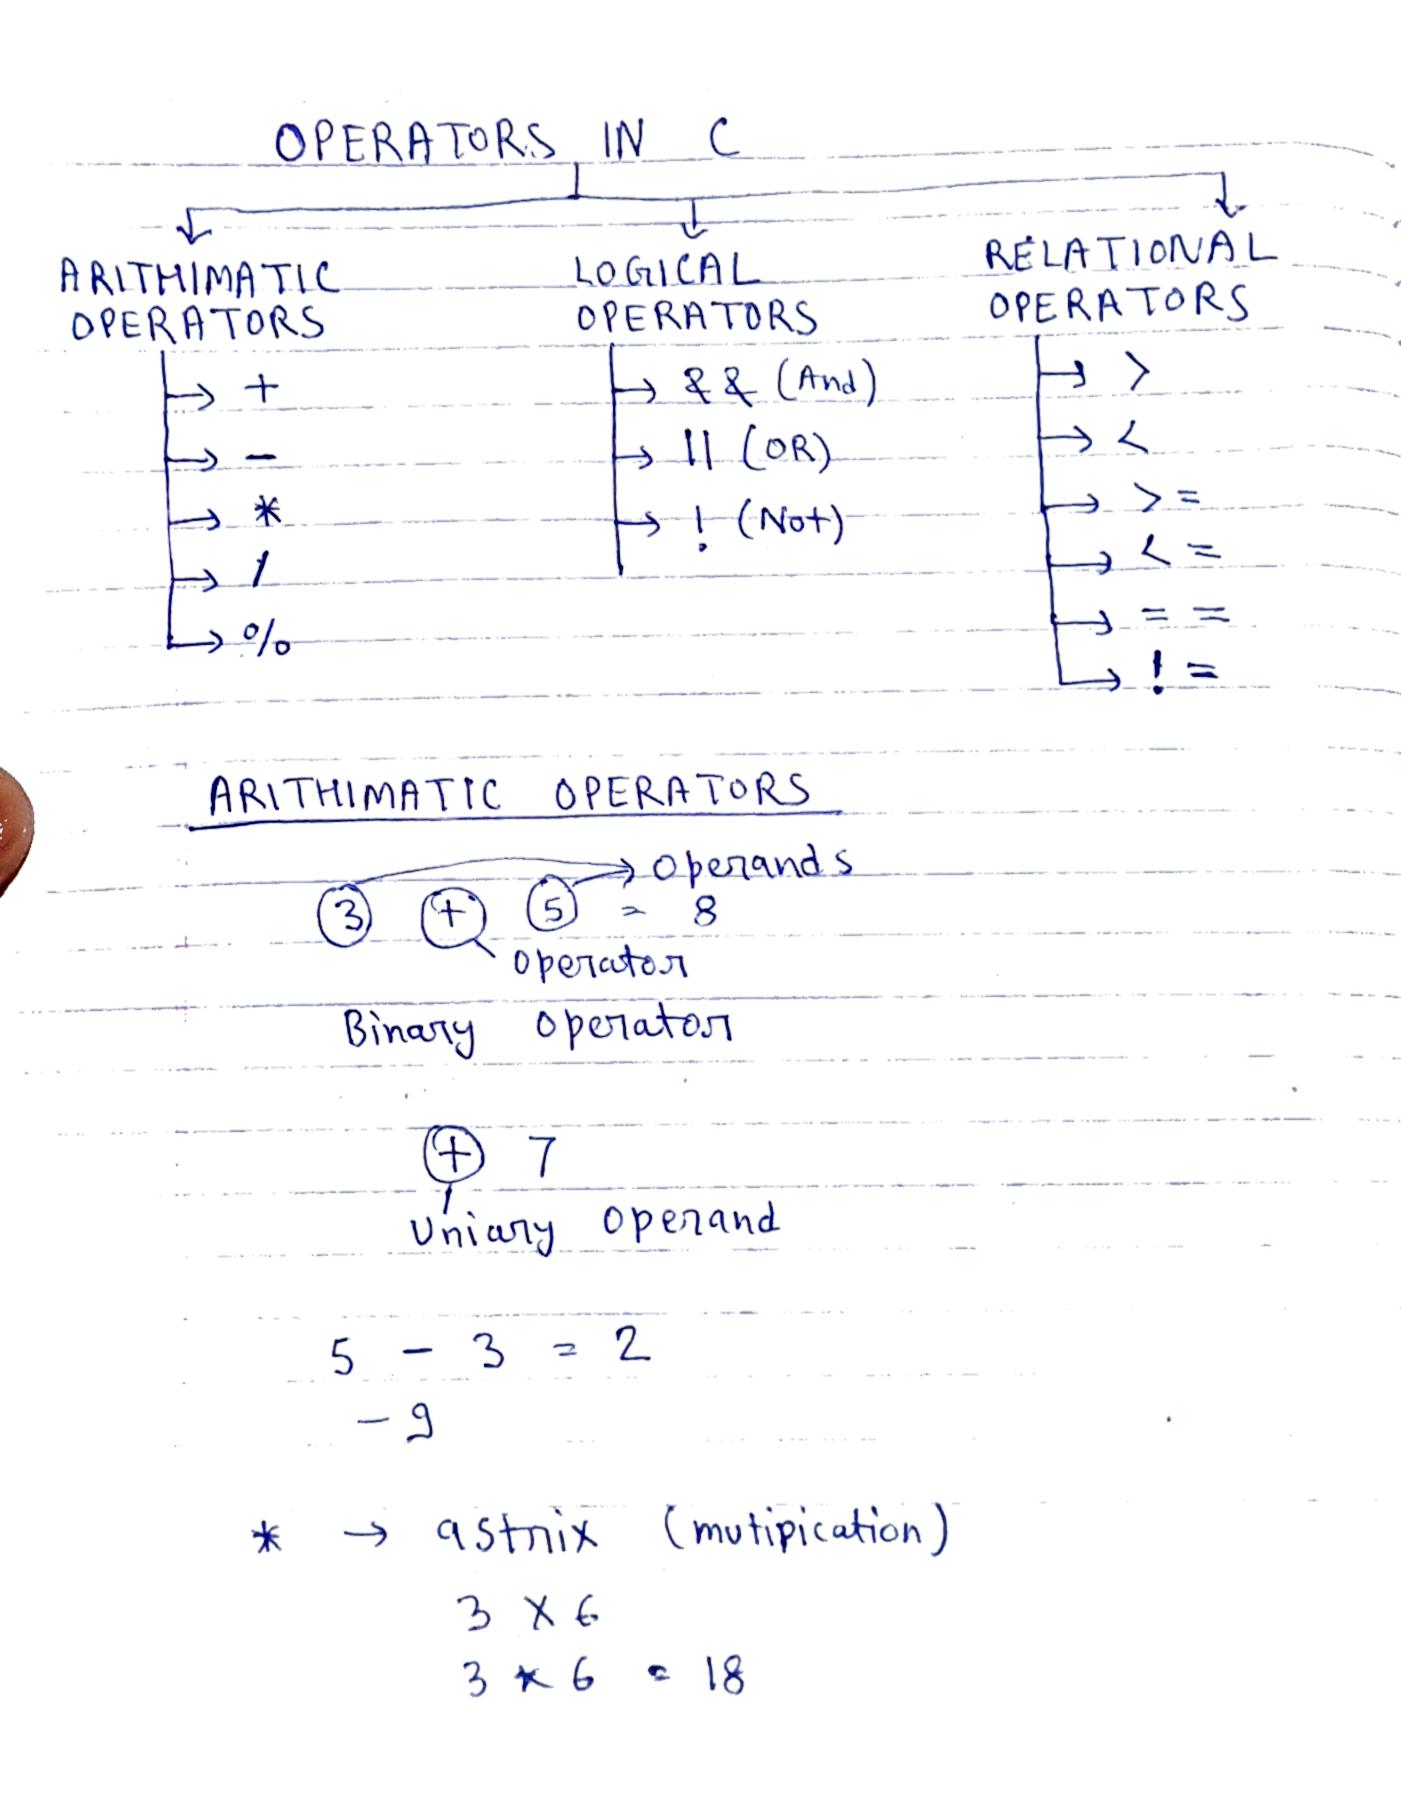 OPERATORS IN C
ARITHIMATIC OPERATORS
+
-
*
/
%
LOGICAL OPERATORS
&& (And)
|| (OR)
! (Not)
RELATIONAL OPERATORS
>
<
>=
<=
= =
! =
ARITHIMATIC OPERATORS
operands
3 + 5 = 8
operator
Binary operator
+ 7
Uniary operand
5 - 3 = 2
- 9
* → astrix (mutipication)
3 X 6
3 * 6 = 18